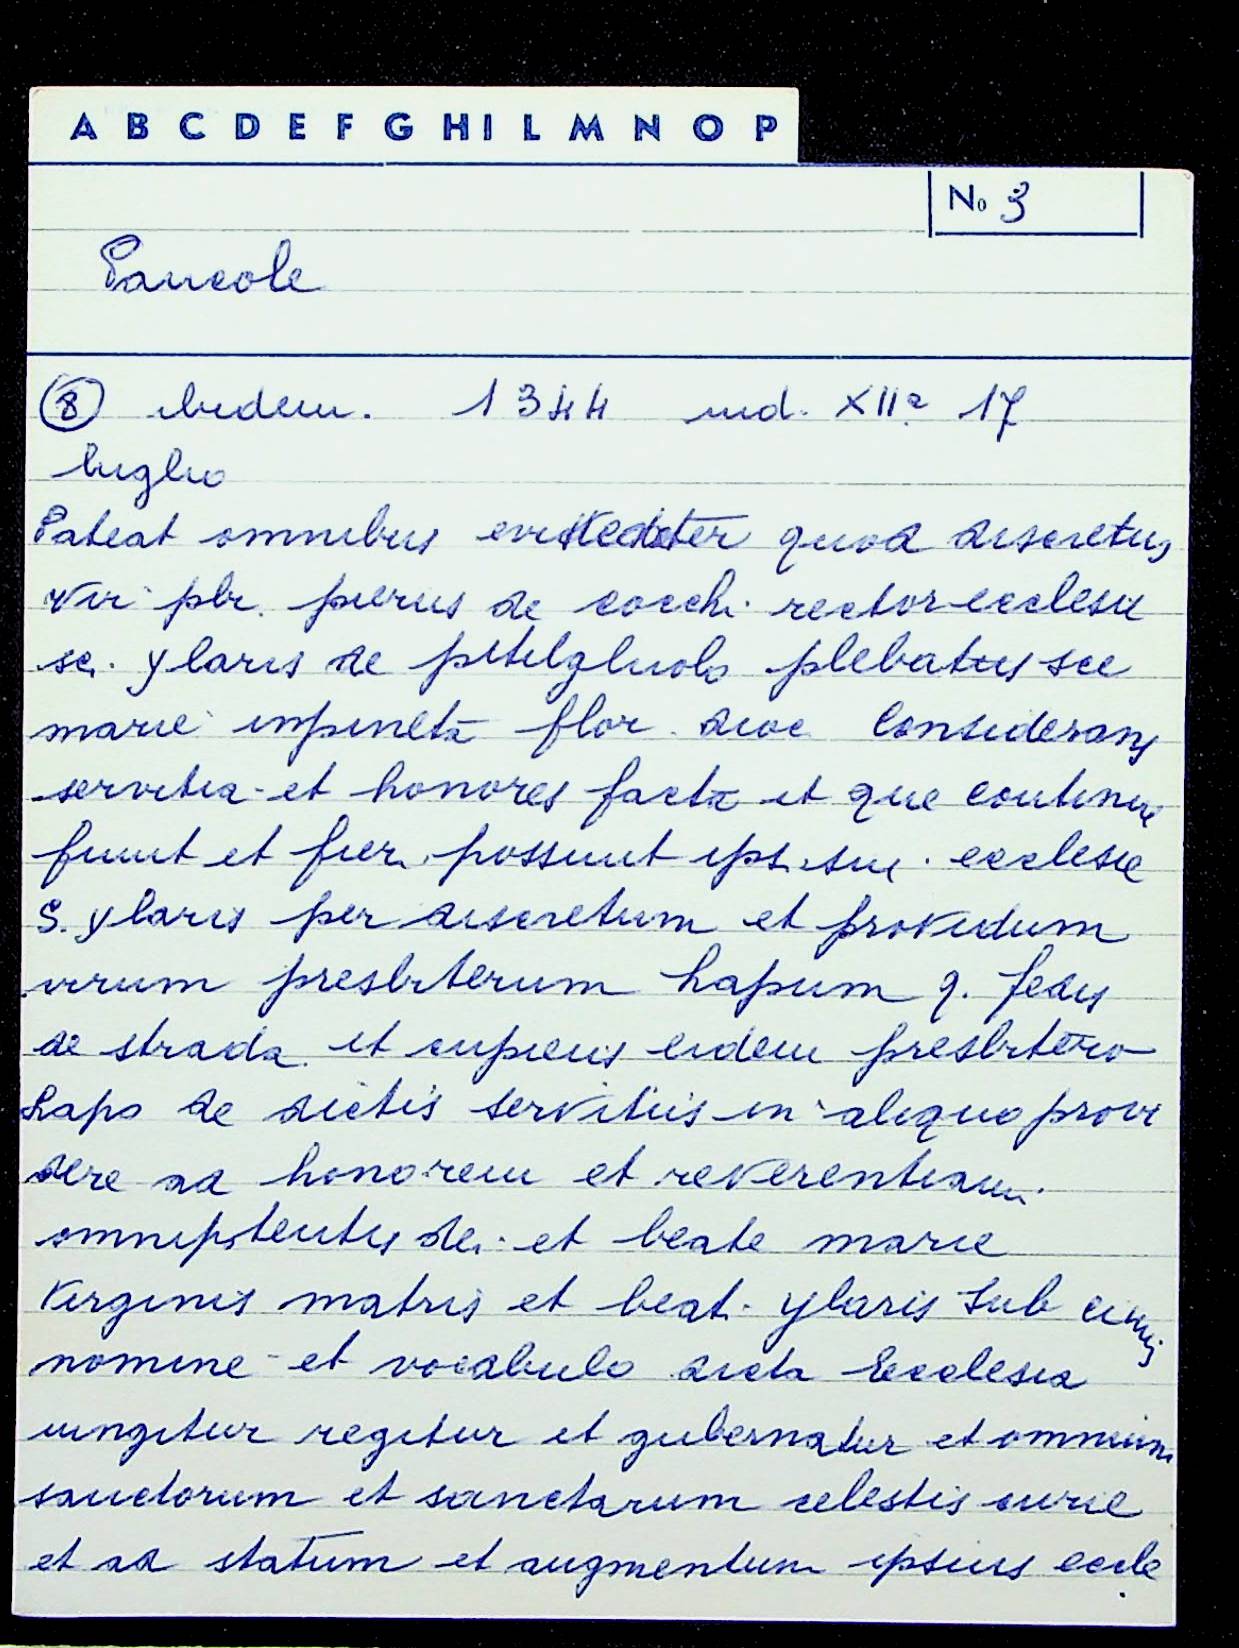 A B C D E F G H I L M N O P
No 3
Pancole
8 ibidem. 1344 ind. XIIa 17
luglio
Pateat omnibus quod discretus
vir pbr. pierus de cocchi rector ecclesie
sci ylaris de plebatus sce
marie impineta flor. dioc. Considerans
servitia et honores facta et que continue
fiunt et fieri possunt ipsi sue ecclesie
S. ylaris per discretum et providum
virum presbiterum hapum q. feduy
de strada et cupiens eidem presbitero
Lapo de dictis servitiis in aliquo provi
dere ad honorem et reverentiam
omnipotentis dei et beate marie
Virginis matris et beati ylaris sub cuius
nomine et vocabulo dicta Ecclesia
iungitur regitur et gubernatur et omnium
sanctorum et sanctarum celestis curie
et ad statum et augmentum ipsius eccle